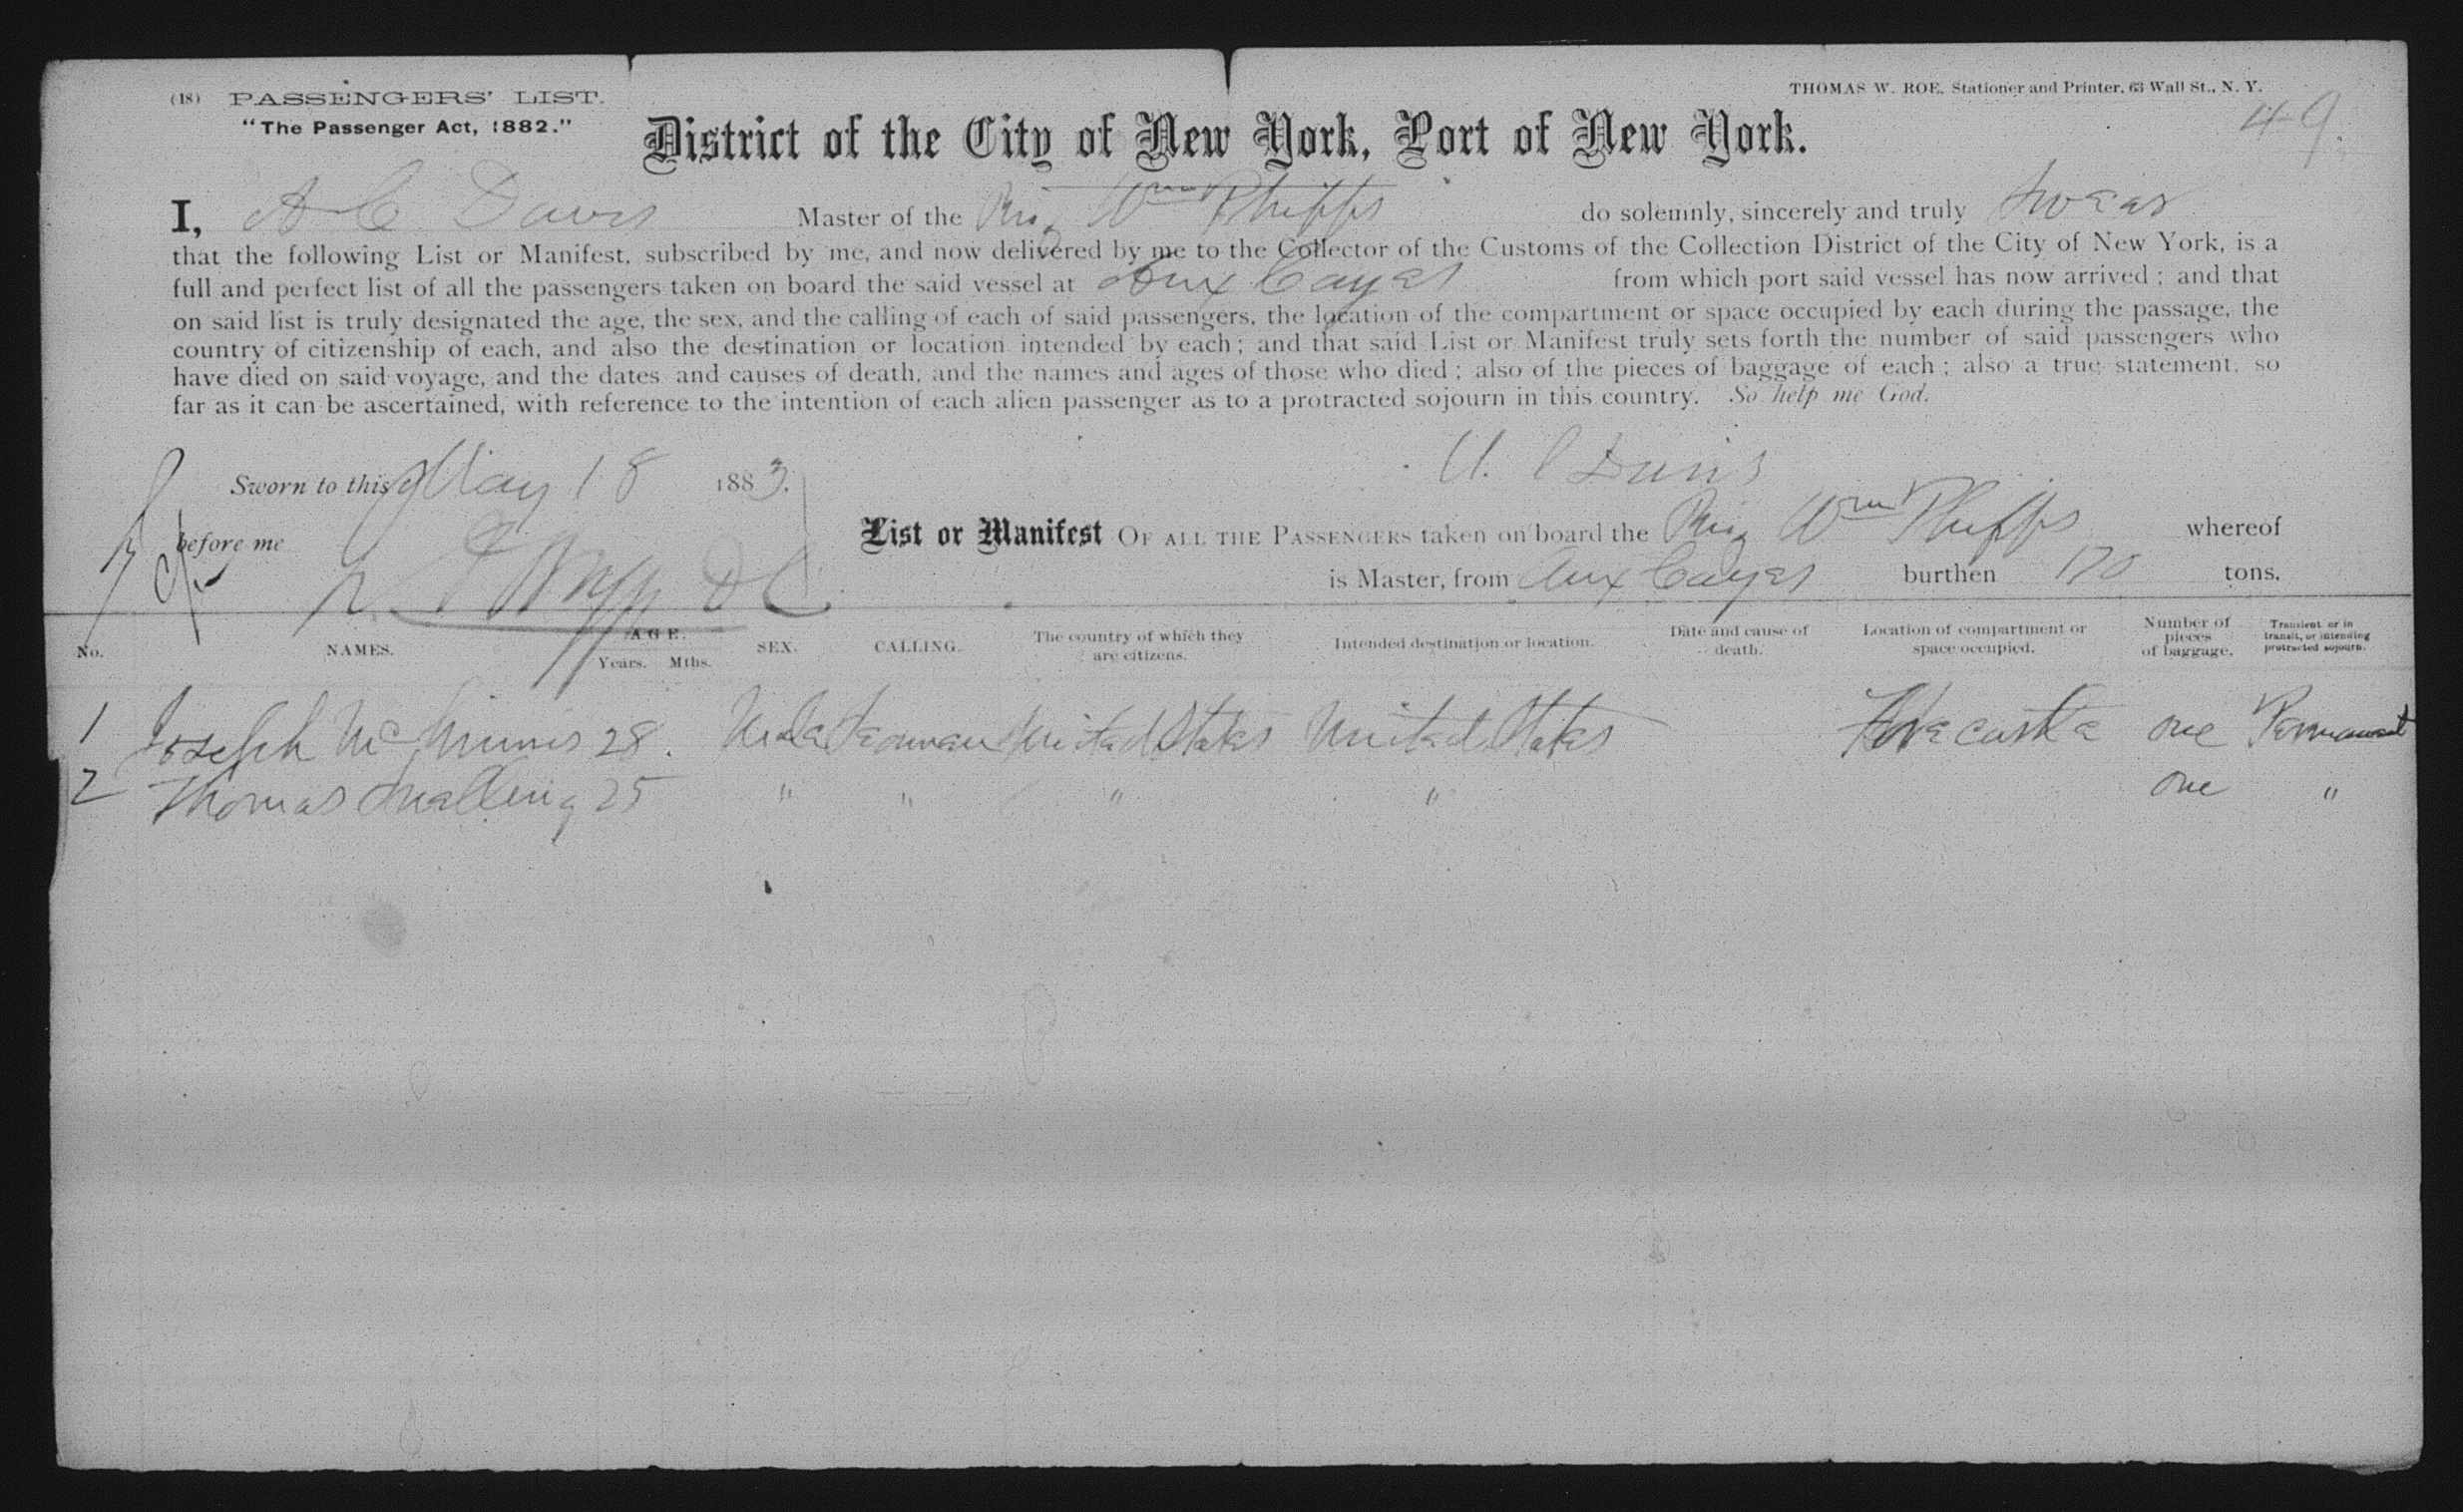 (18) PASSENGERS' LIST.
THOMAS W. ROE, Stationer and Printer, 63 Wall St., N. Y.
"The Passenger Act, 1882."
49
District of the City of New York, Port of New York.
I, A C Davis Master of the Brig Wm Phipps do solemnly, sincerely and truly swear
that the following List or Manifest, subscribed by me, and now delivered by me to the Collector of the Customs of the Collection District of the City of New York, is a
full and perfect list of all the passengers taken on board the said vessel at Aux Cayes from which port said vessel has now arrived; and that
on said list is truly designated the age, the sex, and the calling of each of said passengers, the location of the compartment or space occupied by each during the passage, the
country of citizenship of each, and also the destination or location intended by each; and that said List or Manifest truly sets forth the number of said passengers who
have died on said voyage, and the dates and causes of death, and the names and ages of those who died; also of the pieces of baggage of each; also a true statement, so
far as it can be ascertained, with reference to the intention of each alien passenger as to a protracted sojourn in this country. So help me God.
A. C Davis
Sworn to this May 18 1883.
before me D C
List or Manifest OF ALL THE PASSENGERS taken on board the Brig Wm Phipps whereof
is Master, from Aux Cayes burthen 170 tons.
No. NAMES. AGE. Years. Mths. SEX. CALLING. The country of which they are citizens. Intended destination or location. Date and cause of death. Location of compartment or space occupied. Number of pieces of baggage. Transient or in transit, or intending protracted sojourn.
1 Joseph Mc 28. Male Seaman United States United States Forecastle one Permanent
2 Thomas 25 " " " " one "